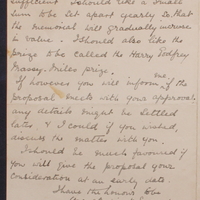 sufficient. I should like a small
sum to be set apart yearly so that
the memorial will gradually increase
in value. I should also like the
prize to be called the Harry Godfrey
Massy-Miles prize.
If however you will inform me if the
proposal meets with your approval,
any details might be settled
later & I could if you wished,
discuss the matter with you.
I should be much favoured if
you will give the proposal your
consideration at an early date
I have the honour to be